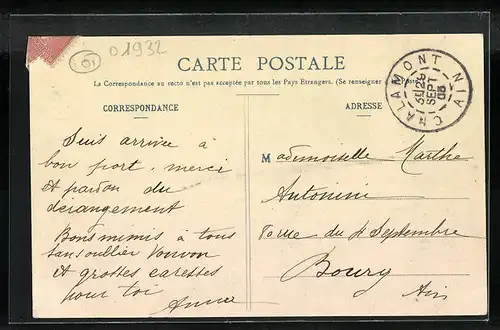 6
D 1932
CARTE POSTALE
La Correspondance au recto n'est pas acceptée par tous les Pays Etrangers. (Se renseigner à la Poste)
CORRESPONDANCE
ADRESSE
CHALAMONT AIN
28
SEPT
05
Suis arrivée à
bon port, merci
et pardon du
dérangement
Bons mimis à tous
sans oublier Vonvon
et grosses caresses
pour toi
Anna
Mademoiselle Marthe
Antonini
rue du 4 Septembre
Bourg
Ain